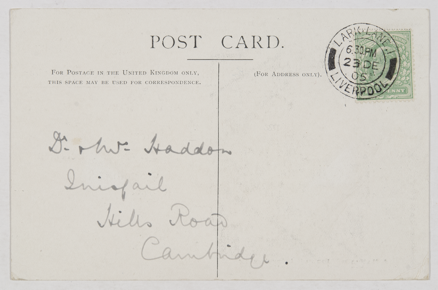 POST CARD.
FOR POSTAGE IN THE UNITED KINGDOM ONLY,
THIS SPACE MAY BE USED FOR CORRESPONDENCE.
(FOR ADDRESS ONLY).
LARK LANE
6.30 PM
23 DE
05
LIVERPOOL
Dr & Mrs Haddon
Inisfail
Hills Road
Cambridge.